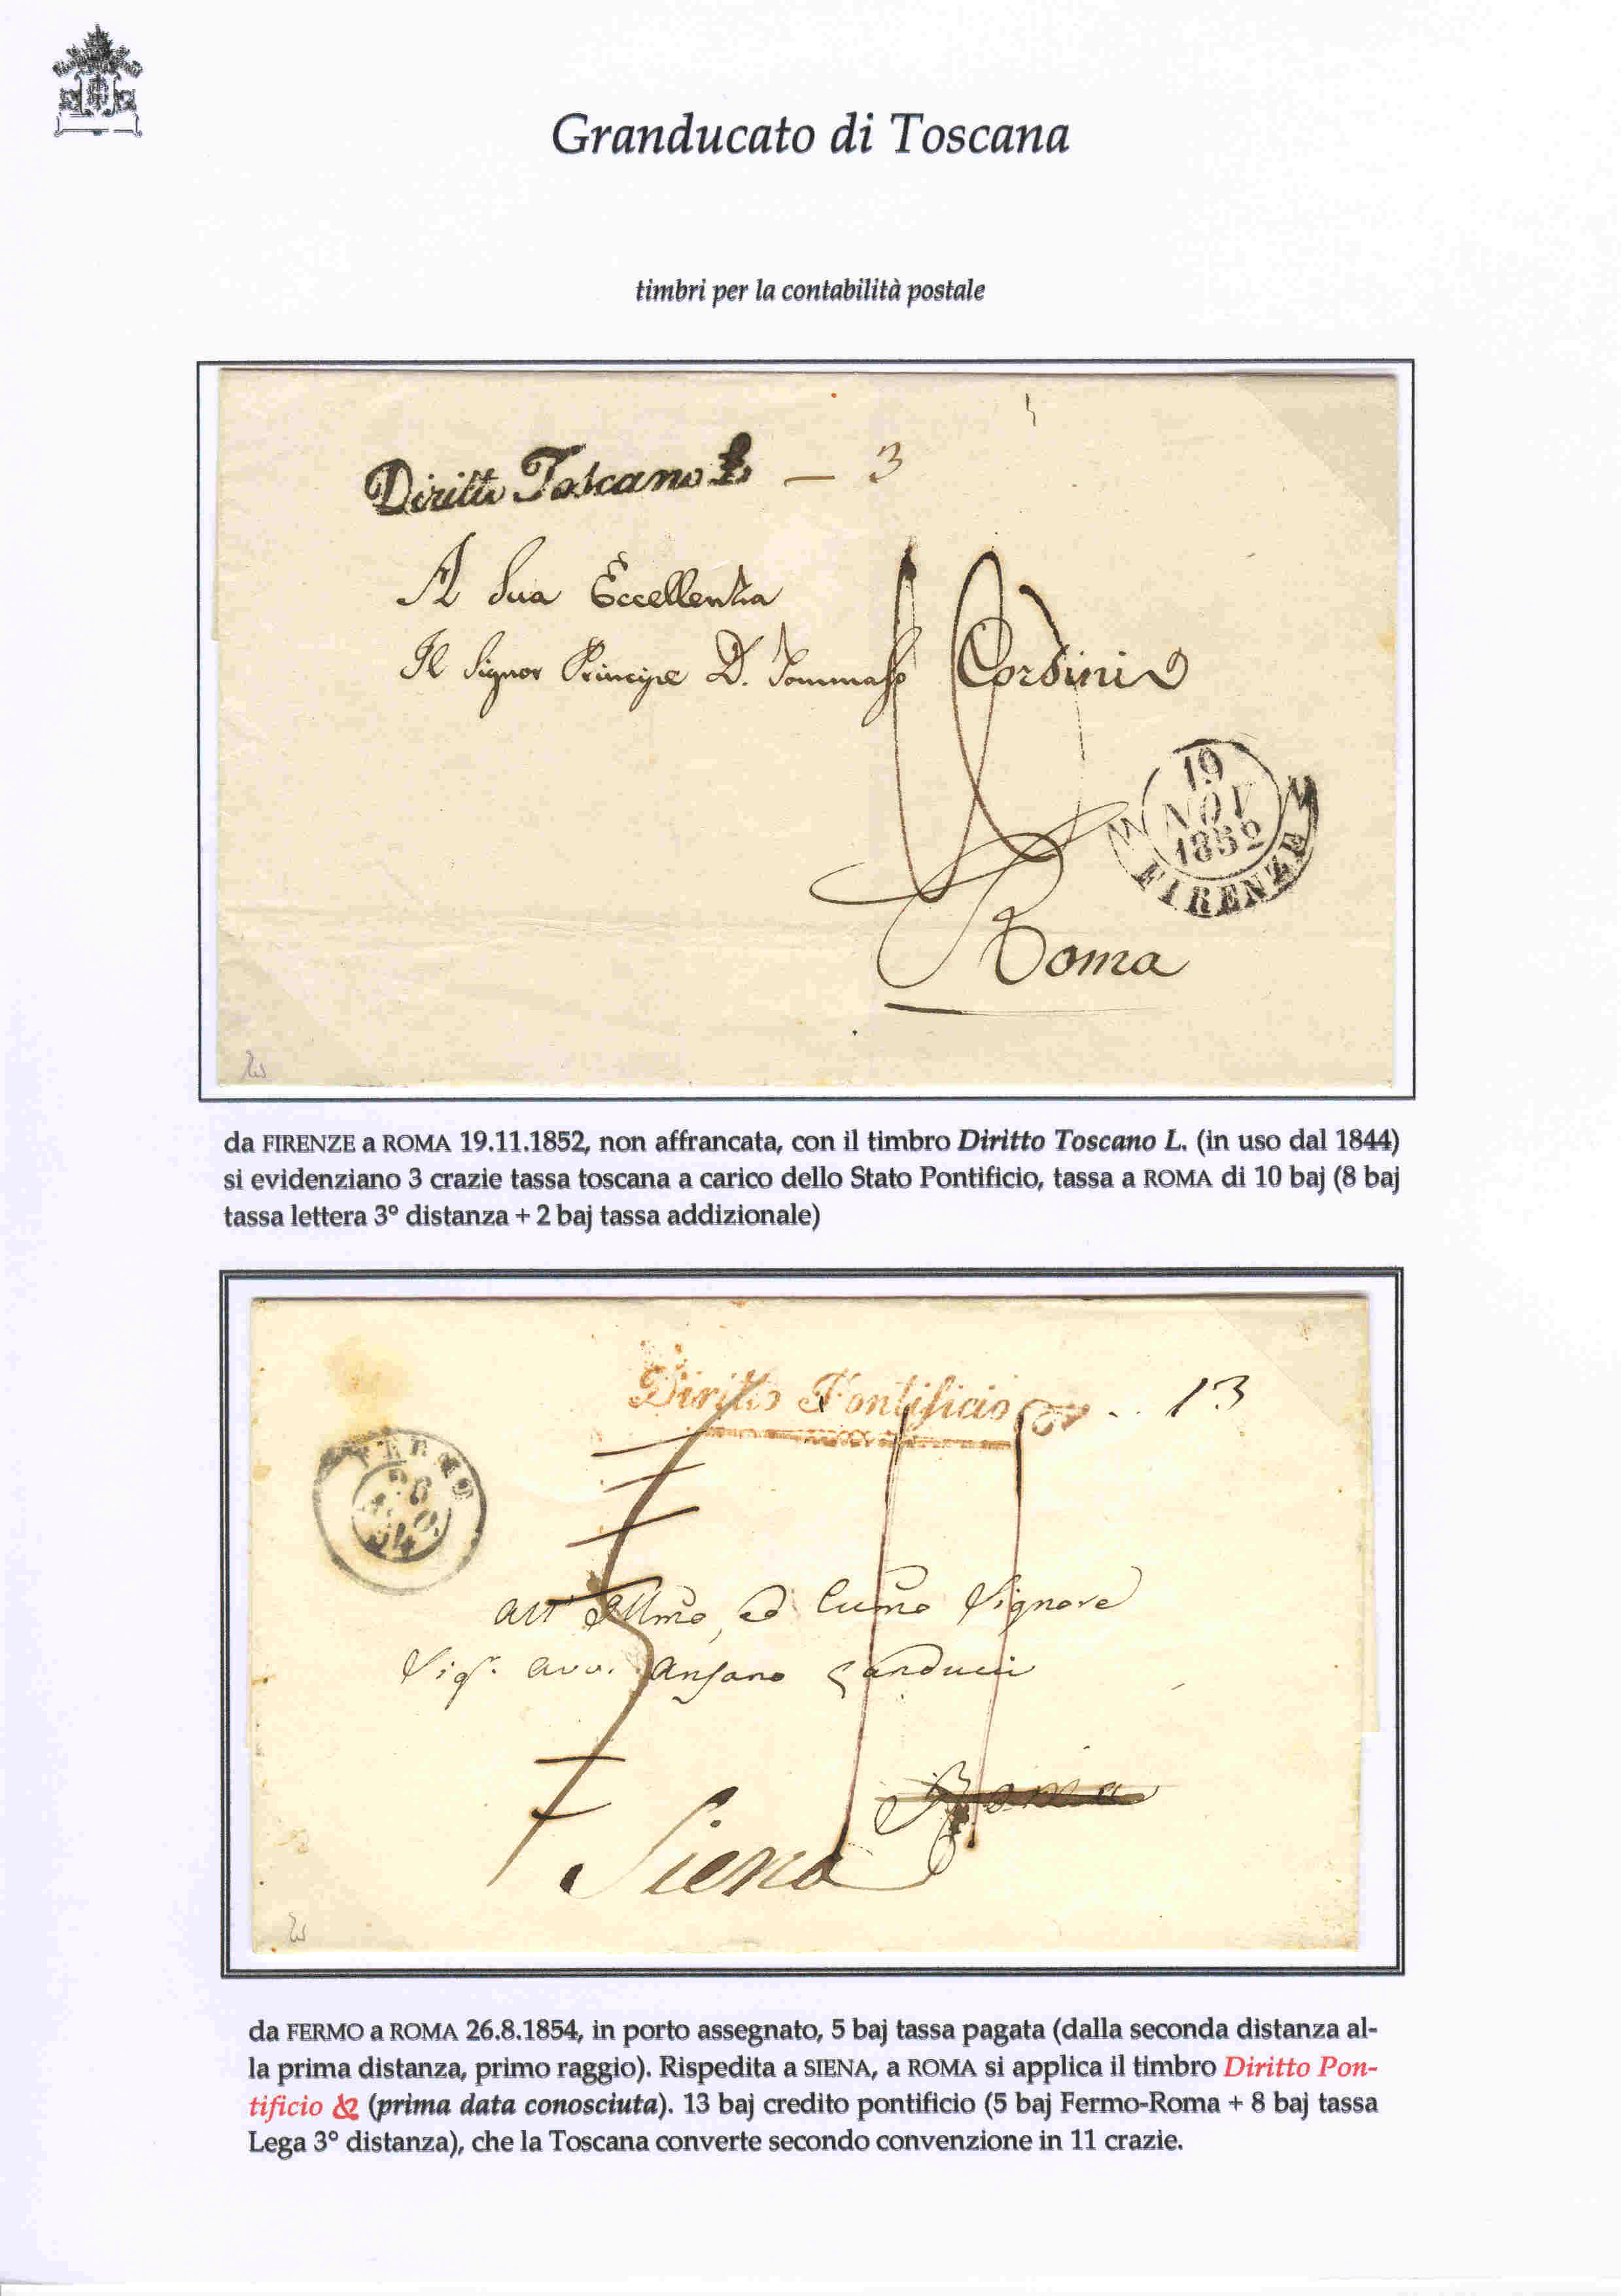 Granducato di Toscana
timbri per la contabilità postale
Diritto Toscano L — 3
A Sua Eccellenza
Il Signor Principe D. Tommaso Corsini
10
19
NOV
1852
FIRENZE
Roma
da FIRENZE a ROMA 19.11.1852, non affrancata, con il timbro Diritto Toscano L. (in uso dal 1844)
si evidenziano 3 crazie tassa toscana a carico dello Stato Pontificio, tassa a ROMA di 10 baj (8 baj
tassa lettera 3° distanza + 2 baj tassa addizionale)
Diritto Pontificio 13
FERMO
26
AGO
54
5
11
All' Illmo, ed Signore
Sigr. Avv. Ansano
Roma
Siena
da FERMO a ROMA 26.8.1854, in porto assegnato, 5 baj tassa pagata (dalla seconda distanza al-
la prima distanza, primo raggio). Rispedita a SIENA, a ROMA si applica il timbro Diritto Pon-
tificio & (prima data conosciuta). 13 baj credito pontificio (5 baj Fermo-Roma + 8 baj tassa
Lega 3° distanza), che la Toscana converte secondo convenzione in 11 crazie.